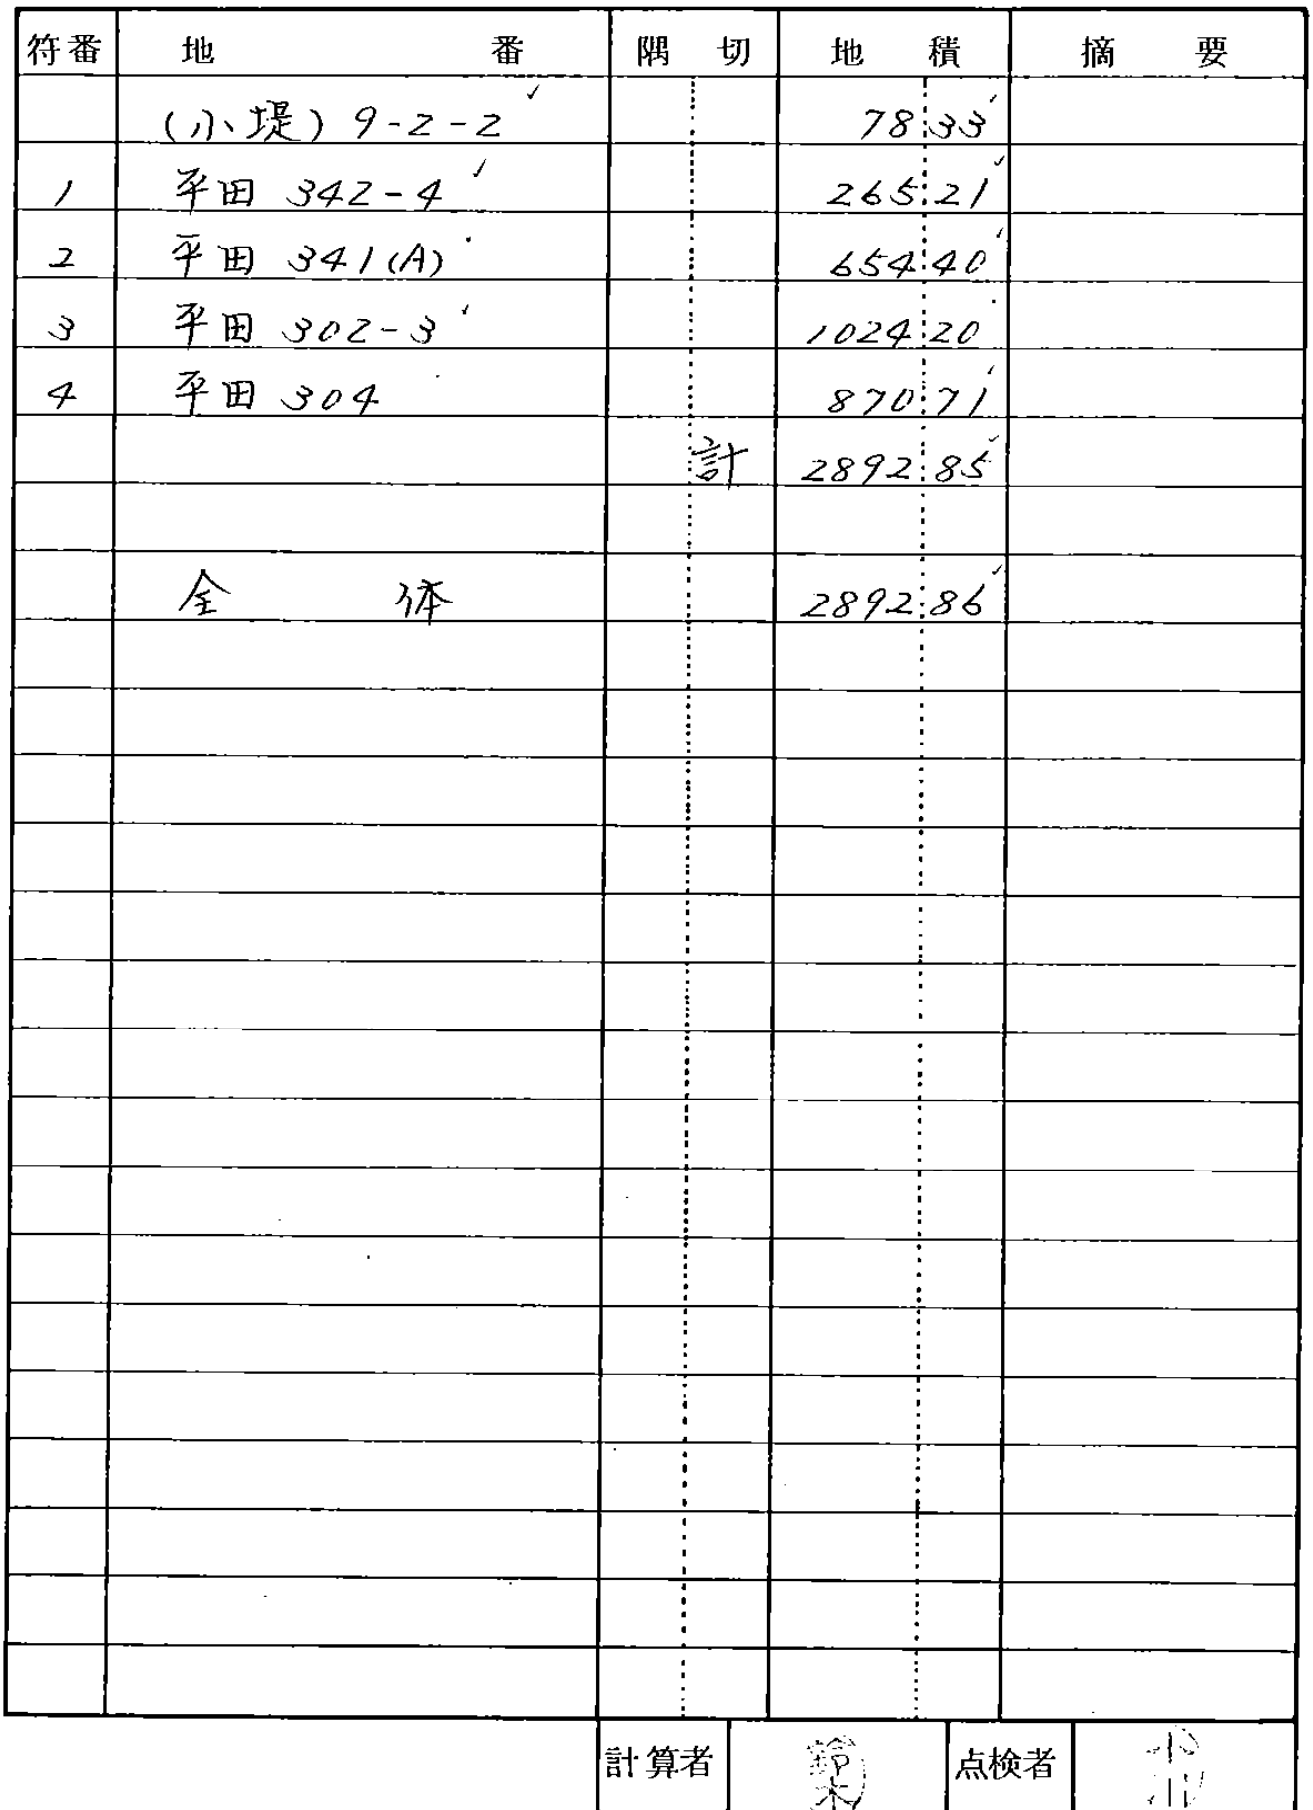 符番 地番 隅切 地積 摘要
(小堤) 9-2-2 78 33
1 平田 342-4 265 21
2 平田 341(A) 654 40
3 平田 302-3 1024 20
4 平田 304 870 71
計 2892 85
全体 2892 86
計算者 鈴木 点検者